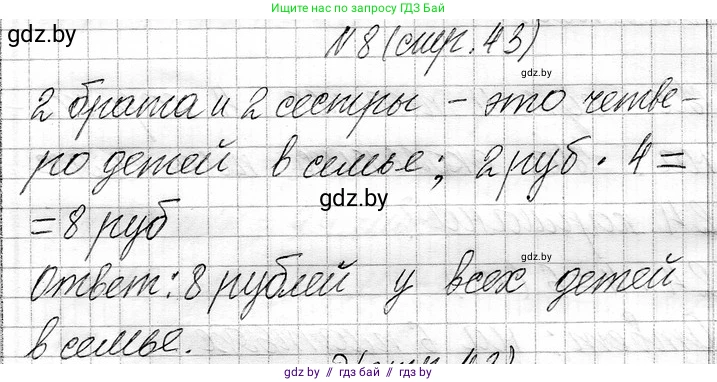 Ищите нас по запросу ГДЗ Бай
gdz.by
№8 (стр. 43)
gdz.by
2 брата и 2 сестры - это четве-
ро детей в семье; 2 руб · 4 =
gdz.by
= 8 руб
gdz.by
Ответ: 8 рублей у всех детей
в семье.
gdz.by // гдз бай // gdz by